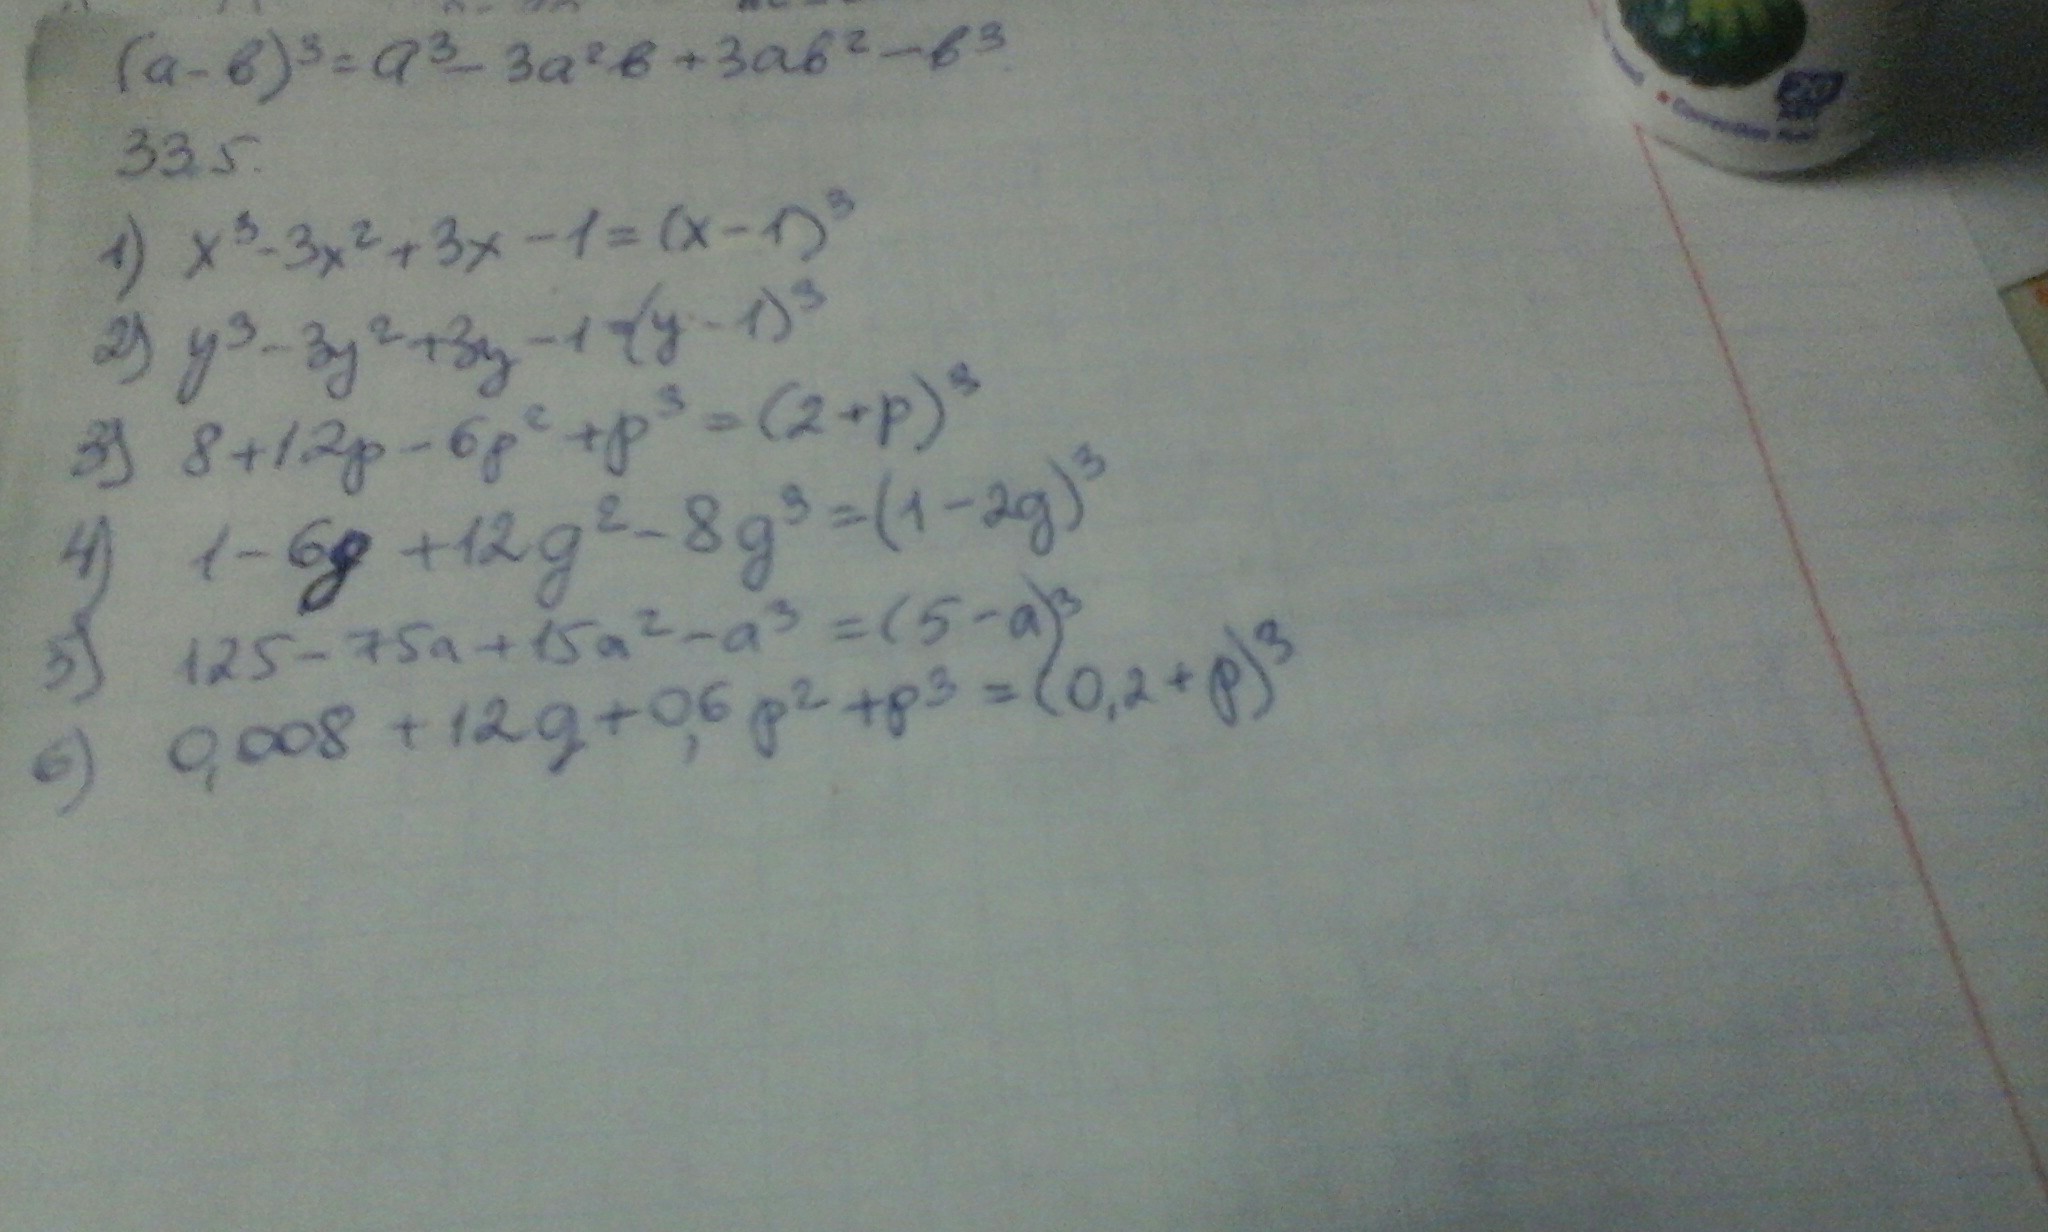 (a-в)³=a³-3a²в+3aв²-в³.
335.
1) x³-3x²+3x-1=(x-1)³
2) y³-3y²+3y-1=(y-1)³
3) 8+12p-6p²+p³=(2+p)³
4) 1-6g+12g²-8g³=(1-2g)³
5) 125-75a+15a²-a³=(5-a)³
6) 0,008+12g+0,6p²+p³=(0,2+p)³